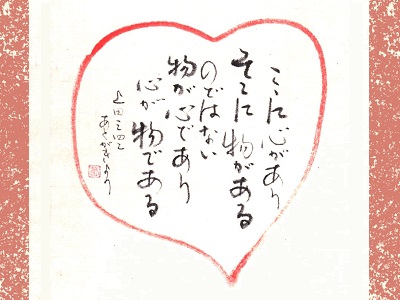 ここに心があり
そこに物がある
のではない
物が心であり
心が物である
上田三四二
あとがきより